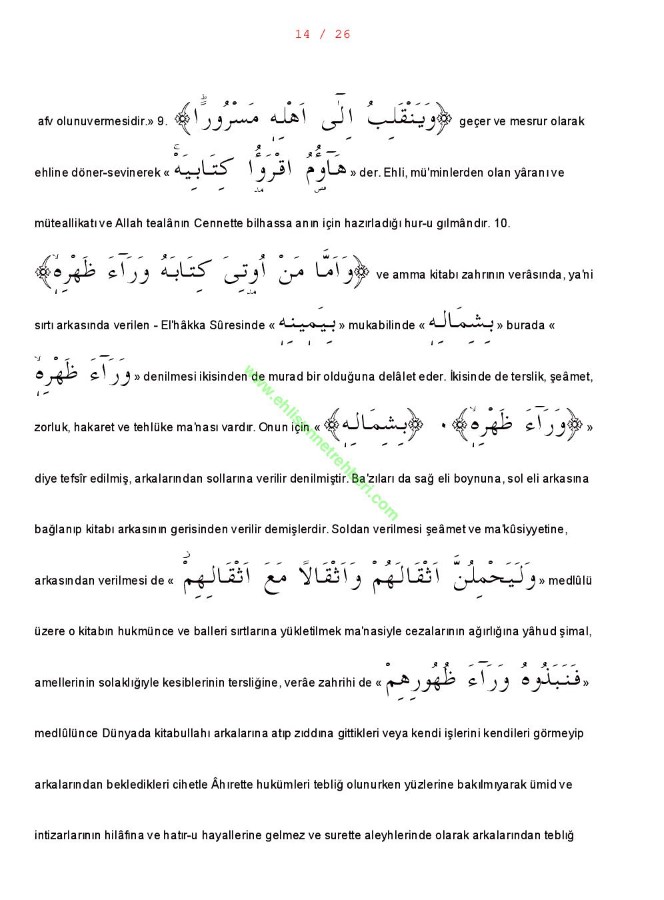 14 / 26
afv olunuvermesidir.» 9. ﴿وَيَنْقَلِبُ اِلٰٓى اَهْلِه۪ مَسْرُورًاۜ﴾ geçer ve mesrur olarak
ehline döner-sevinerek « هَٓاؤُ۬مُ اقْرَؤُ۫ا كِتَابِيَهْۚ » der. Ehli, mü'minlerden olan yâranı ve
müteallikatı ve Allah tealânın Cennette bilhassa anın için hazırladığı hur-u gılmândır. 10.
﴿وَاَمَّا مَنْ اُو۫تِيَ كِتَابَهُ وَرَٓاءَ ظَهْرِه۪ۙ﴾ ve amma kitabı zahrının verâsında, ya'ni
sırtı arkasında verilen - El'hâkka Sûresinde « بِيَم۪ينِه۪ » mukabilinde « بِشِمَالِه۪ » burada «
وَرَٓاءَ ظَهْرِه۪ۙ » denilmesi ikisinden de murad bir olduğuna delâlet eder. İkisinde de terslik, şeâmet,
zorluk, hakaret ve tehlüke ma'nası vardır. Onun için « ﴿وَرَٓاءَ ظَهْرِه۪ۙ﴾ ٠ ﴿بِشِمَالِه۪﴾ »
diye tefsîr edilmiş, arkalarından sollarına verilir denilmiştir. Ba'zıları da sağ eli boynuna, sol eli arkasına
bağlanıp kitabı arkasının gerisinden verilir demişlerdir. Soldan verilmesi şeâmet ve ma'kûsiyyetine,
arkasından verilmesi de « وَلَيَحْمِلُنَّ اَثْقَالَهُمْ وَاَثْقَالًا مَعَ اَثْقَالِهِمْۘ » medlûlü
üzere o kitabın hukmünce ve balleri sırtlarına yükletilmek ma'nasiyle cezalarının ağırlığına yâhud şimal,
amellerinin solaklığıyle kesiblerinin tersliğine, verâe zahrihi de « فَنَبَذُوهُ وَرَٓاءَ ظُهُورِهِمْ »
medlûlünce Dünyada kitabullahı arkalarına atıp zıddına gittikleri veya kendi işlerini kendileri görmeyip
arkalarından bekledikleri cihetle Âhırette hukümleri tebliğ olunurken yüzlerine bakılmıyarak ümid ve
intizarlarının hilâfına ve hatır-u hayallerine gelmez ve surette aleyhlerinde olarak arkalarından teblığ
www.ehlisunnetrehberi.com